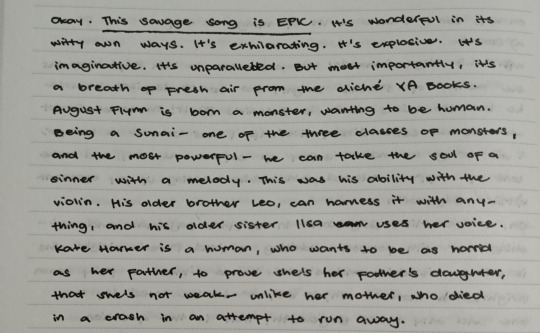 Okay. This savage song is EPIC. It's wonderful in its
witty own ways. It's exhilarating. It's explosive. It's
imaginative. It's unparalleled. But most importantly, it's
a breath of fresh air from the cliché YA Books.
August Flynn is born a monster, wanting to be human.
Being a Sunai- one of the three classes of monsters,
and the most powerful- he can take the soul of a
sinner with a melody. This was his ability with the
violin. His older brother Leo, can harness it with any-
thing, and his older sister Ilsa uses her voice.
Kate Harker is a human, who wants to be as horrid
as her father, to prove she's her father's daughter,
that she's not weak- unlike her mother, who died
in a crash in an attempt to run away.